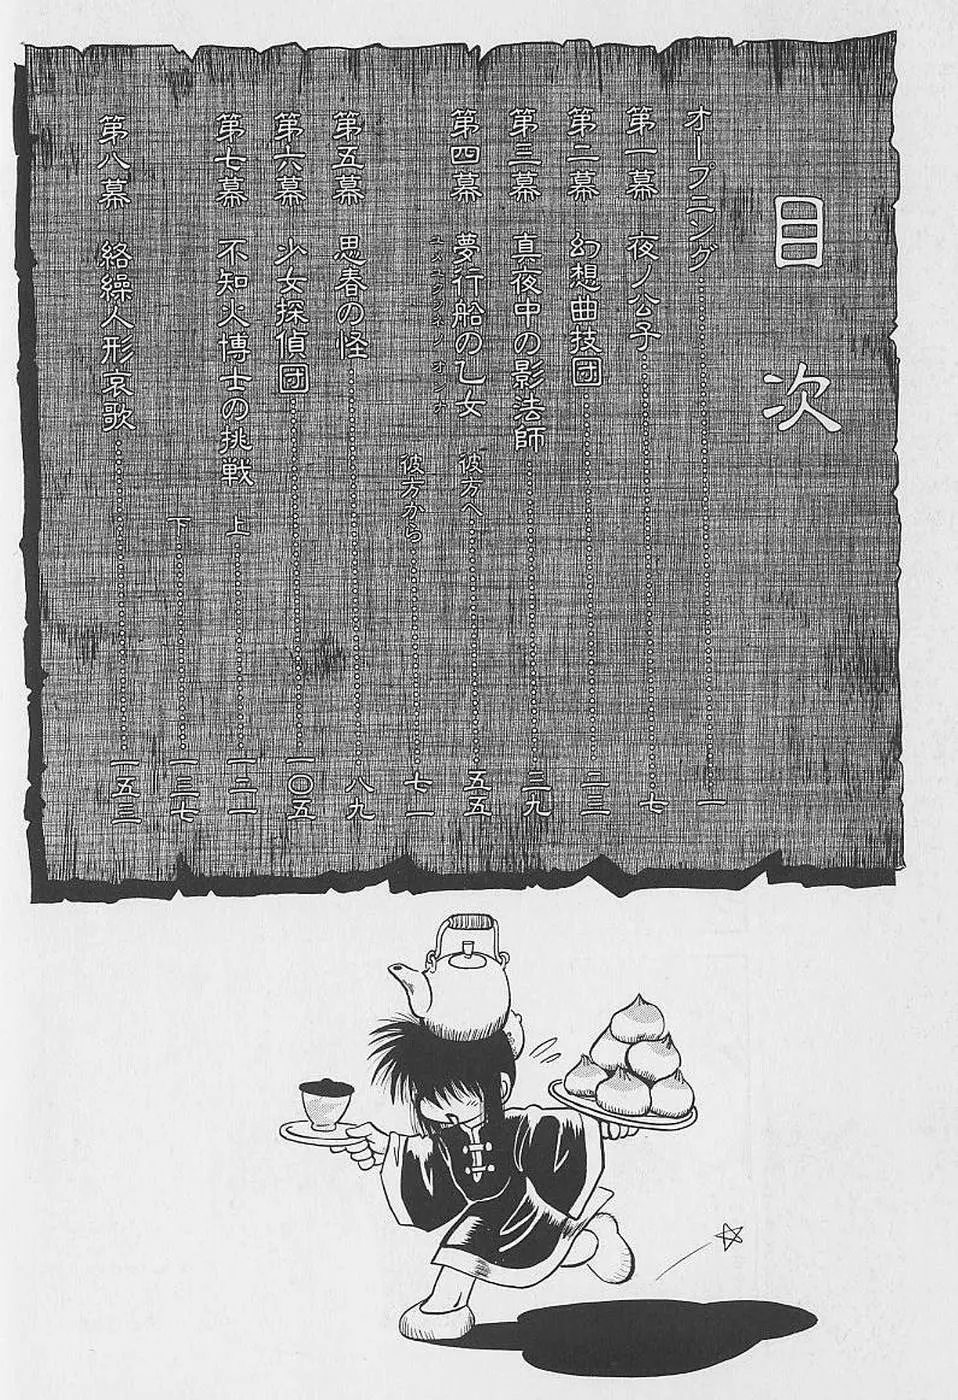 目次
オープニング…………一
第一幕 夜ノ公子…………七
第二幕 幻想曲技団…………二三
第三幕 真夜中の影法師…………三九
第四幕 夢行船の乙女 彼方へ…………五五
ユメユクフネノ オンナ
彼方から…………七一
第五幕 思春の怪…………八九
第六幕 少女探偵団…………一〇五
第七幕 不知火博士の挑戦 上…………一二一
下…………一三七
第八幕 絡繰人形哀歌…………一五三